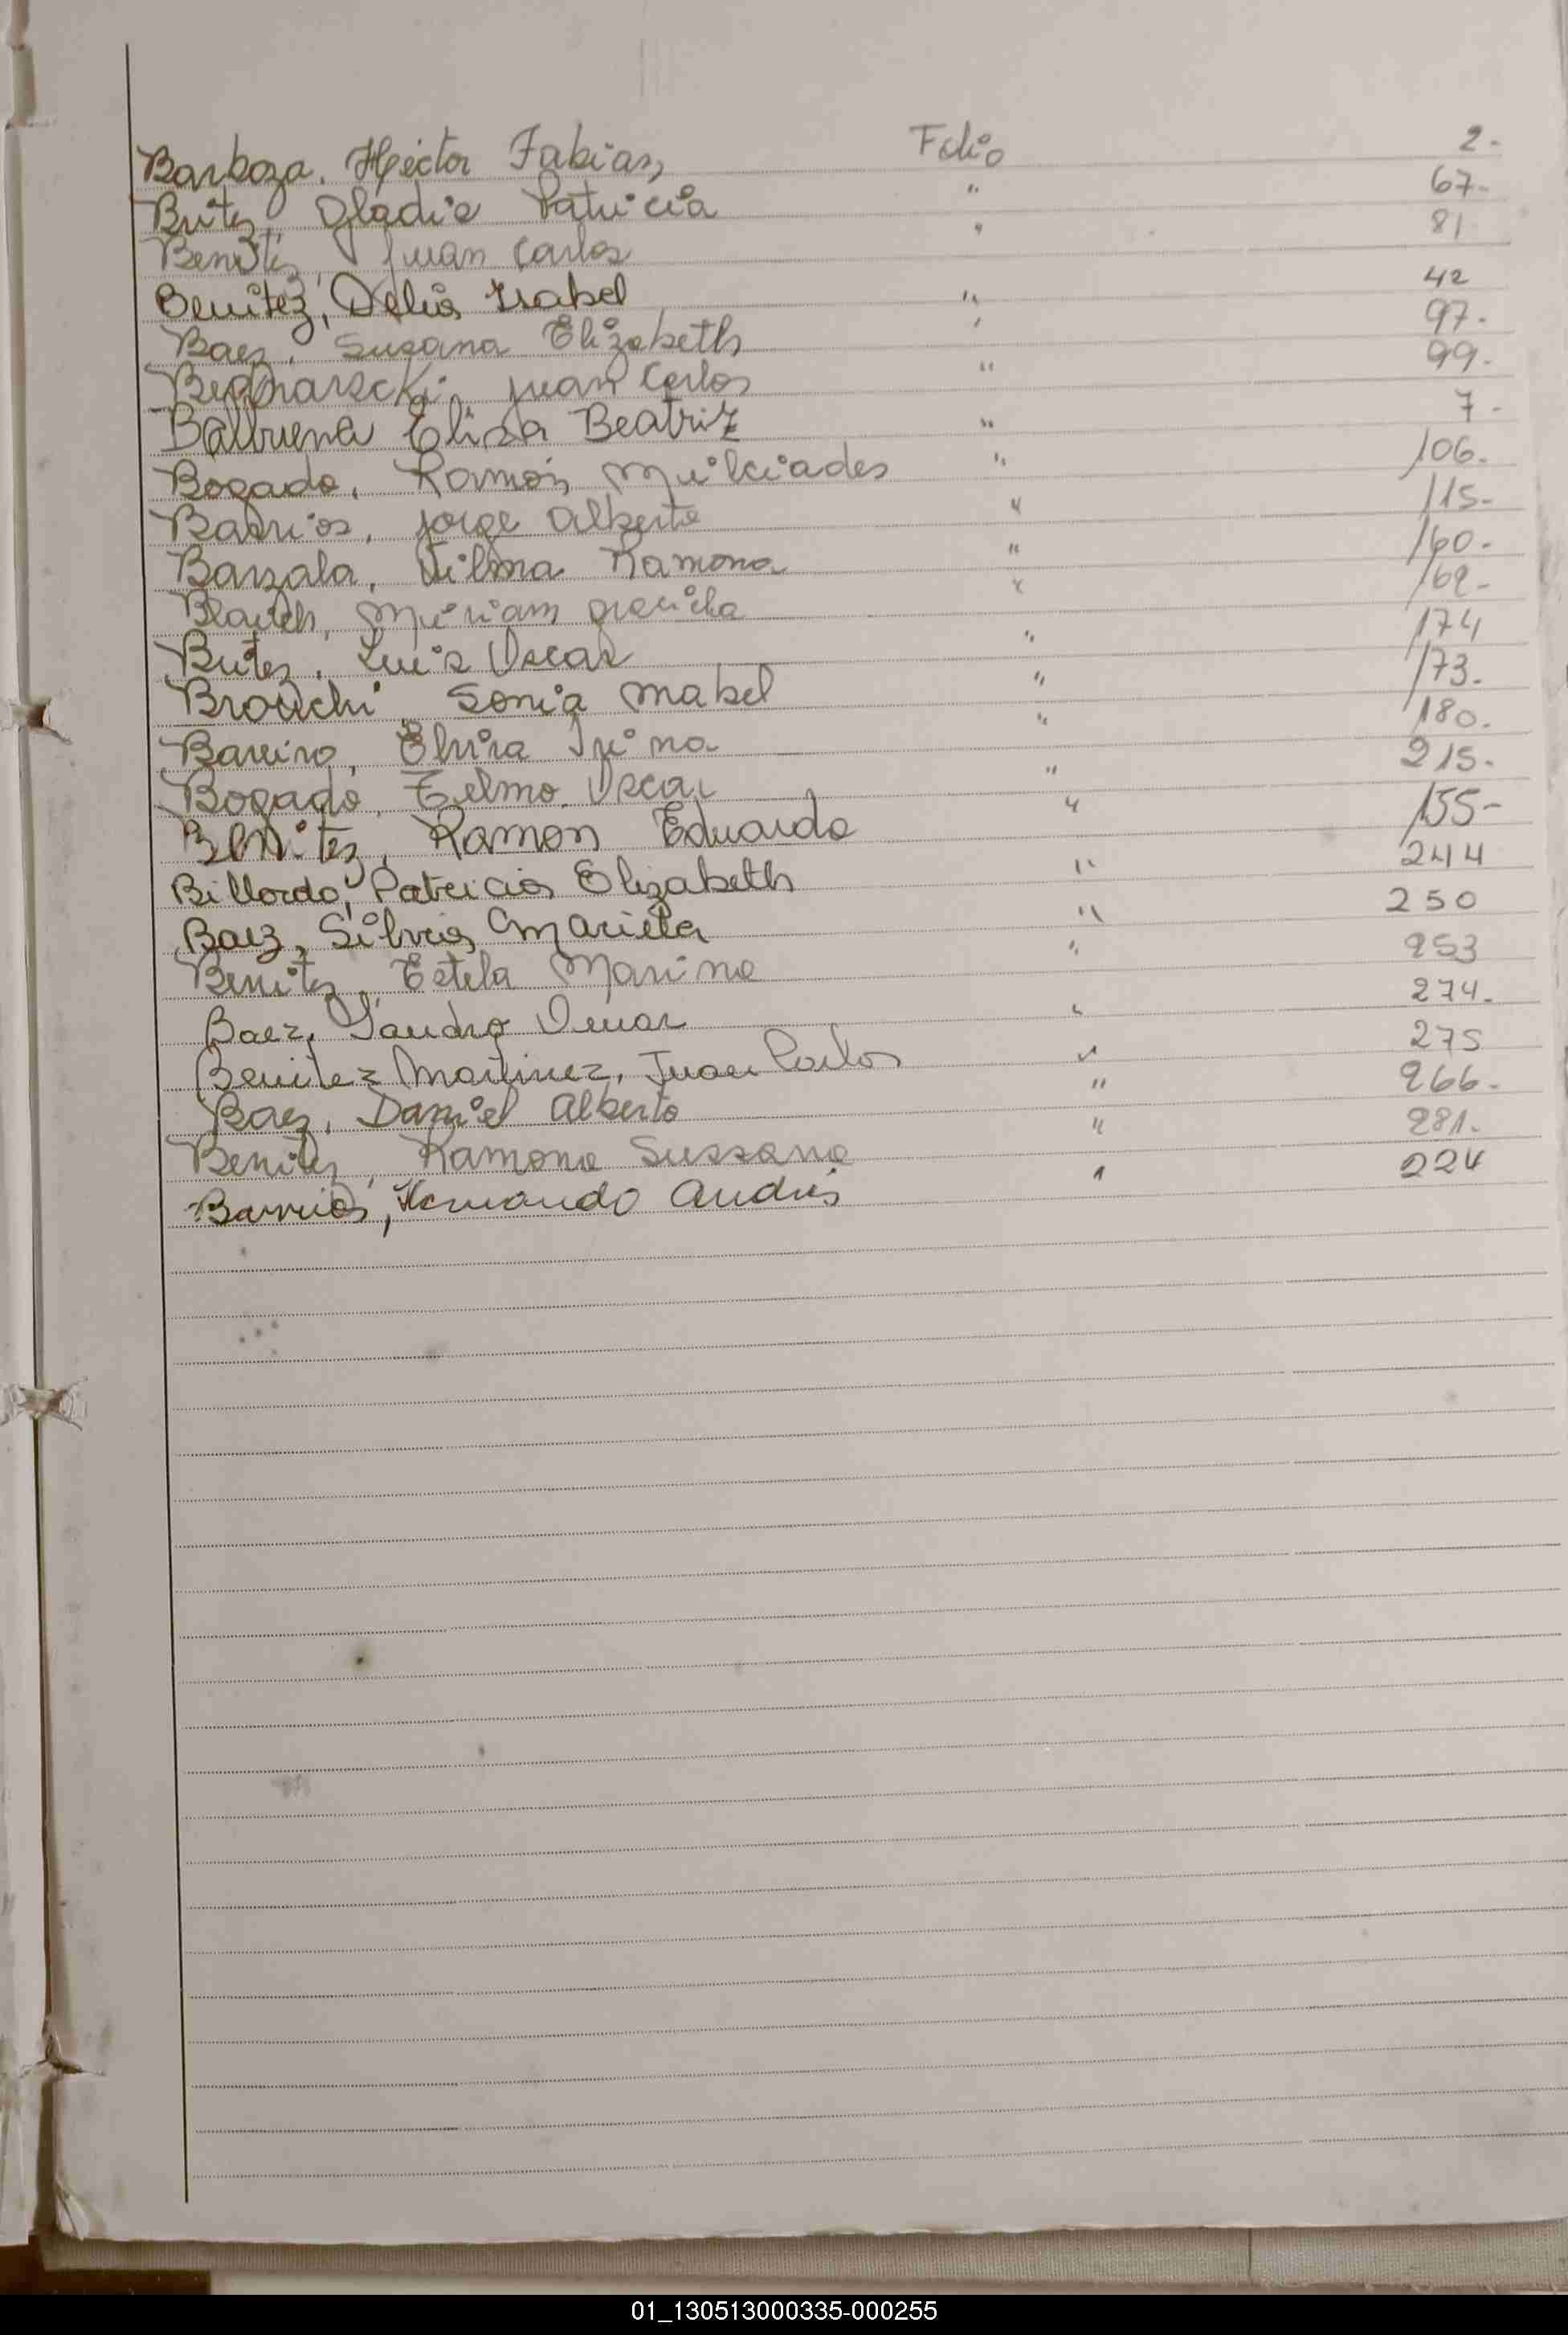 Barboza, Héctor Fabian, Folio 2-
Britez, Gladis Patricia " 67-
Benitez, Juan Carlos " 81
Benitez, Delia Isabel " 42
Baez, Susana Elizabeth " 97-
Juan Carlos " 99-
Balbuena Elisa Beatriz " 7-
Bogado, Ramón Milciades " 106-
Barrios, Jorge Alberto " 115-
Barzala, Vilma Ramona " 160-
Miriam Graciela " 162-
Britez, Luis Oscar " 174
Sonia Mabel " 173-
Bareiro, Elvira Irma " 180-
Bogado, Telmo Oscar " 215-
Benitez, Ramon Eduardo " 155-
Billordo, Patricia Elizabeth " 244
Baez, Silvia Mariela " 250
Benitez, Estela Marina " 253
Baez, Sandro Omar " 274-
Benitez Martinez, Juan Carlos " 275
Baez, Daniel Alberto " 266-
Benitez, Ramona Sussana " 281-
Barrios, Hernando Andrés " 224
01_130513000335-000255